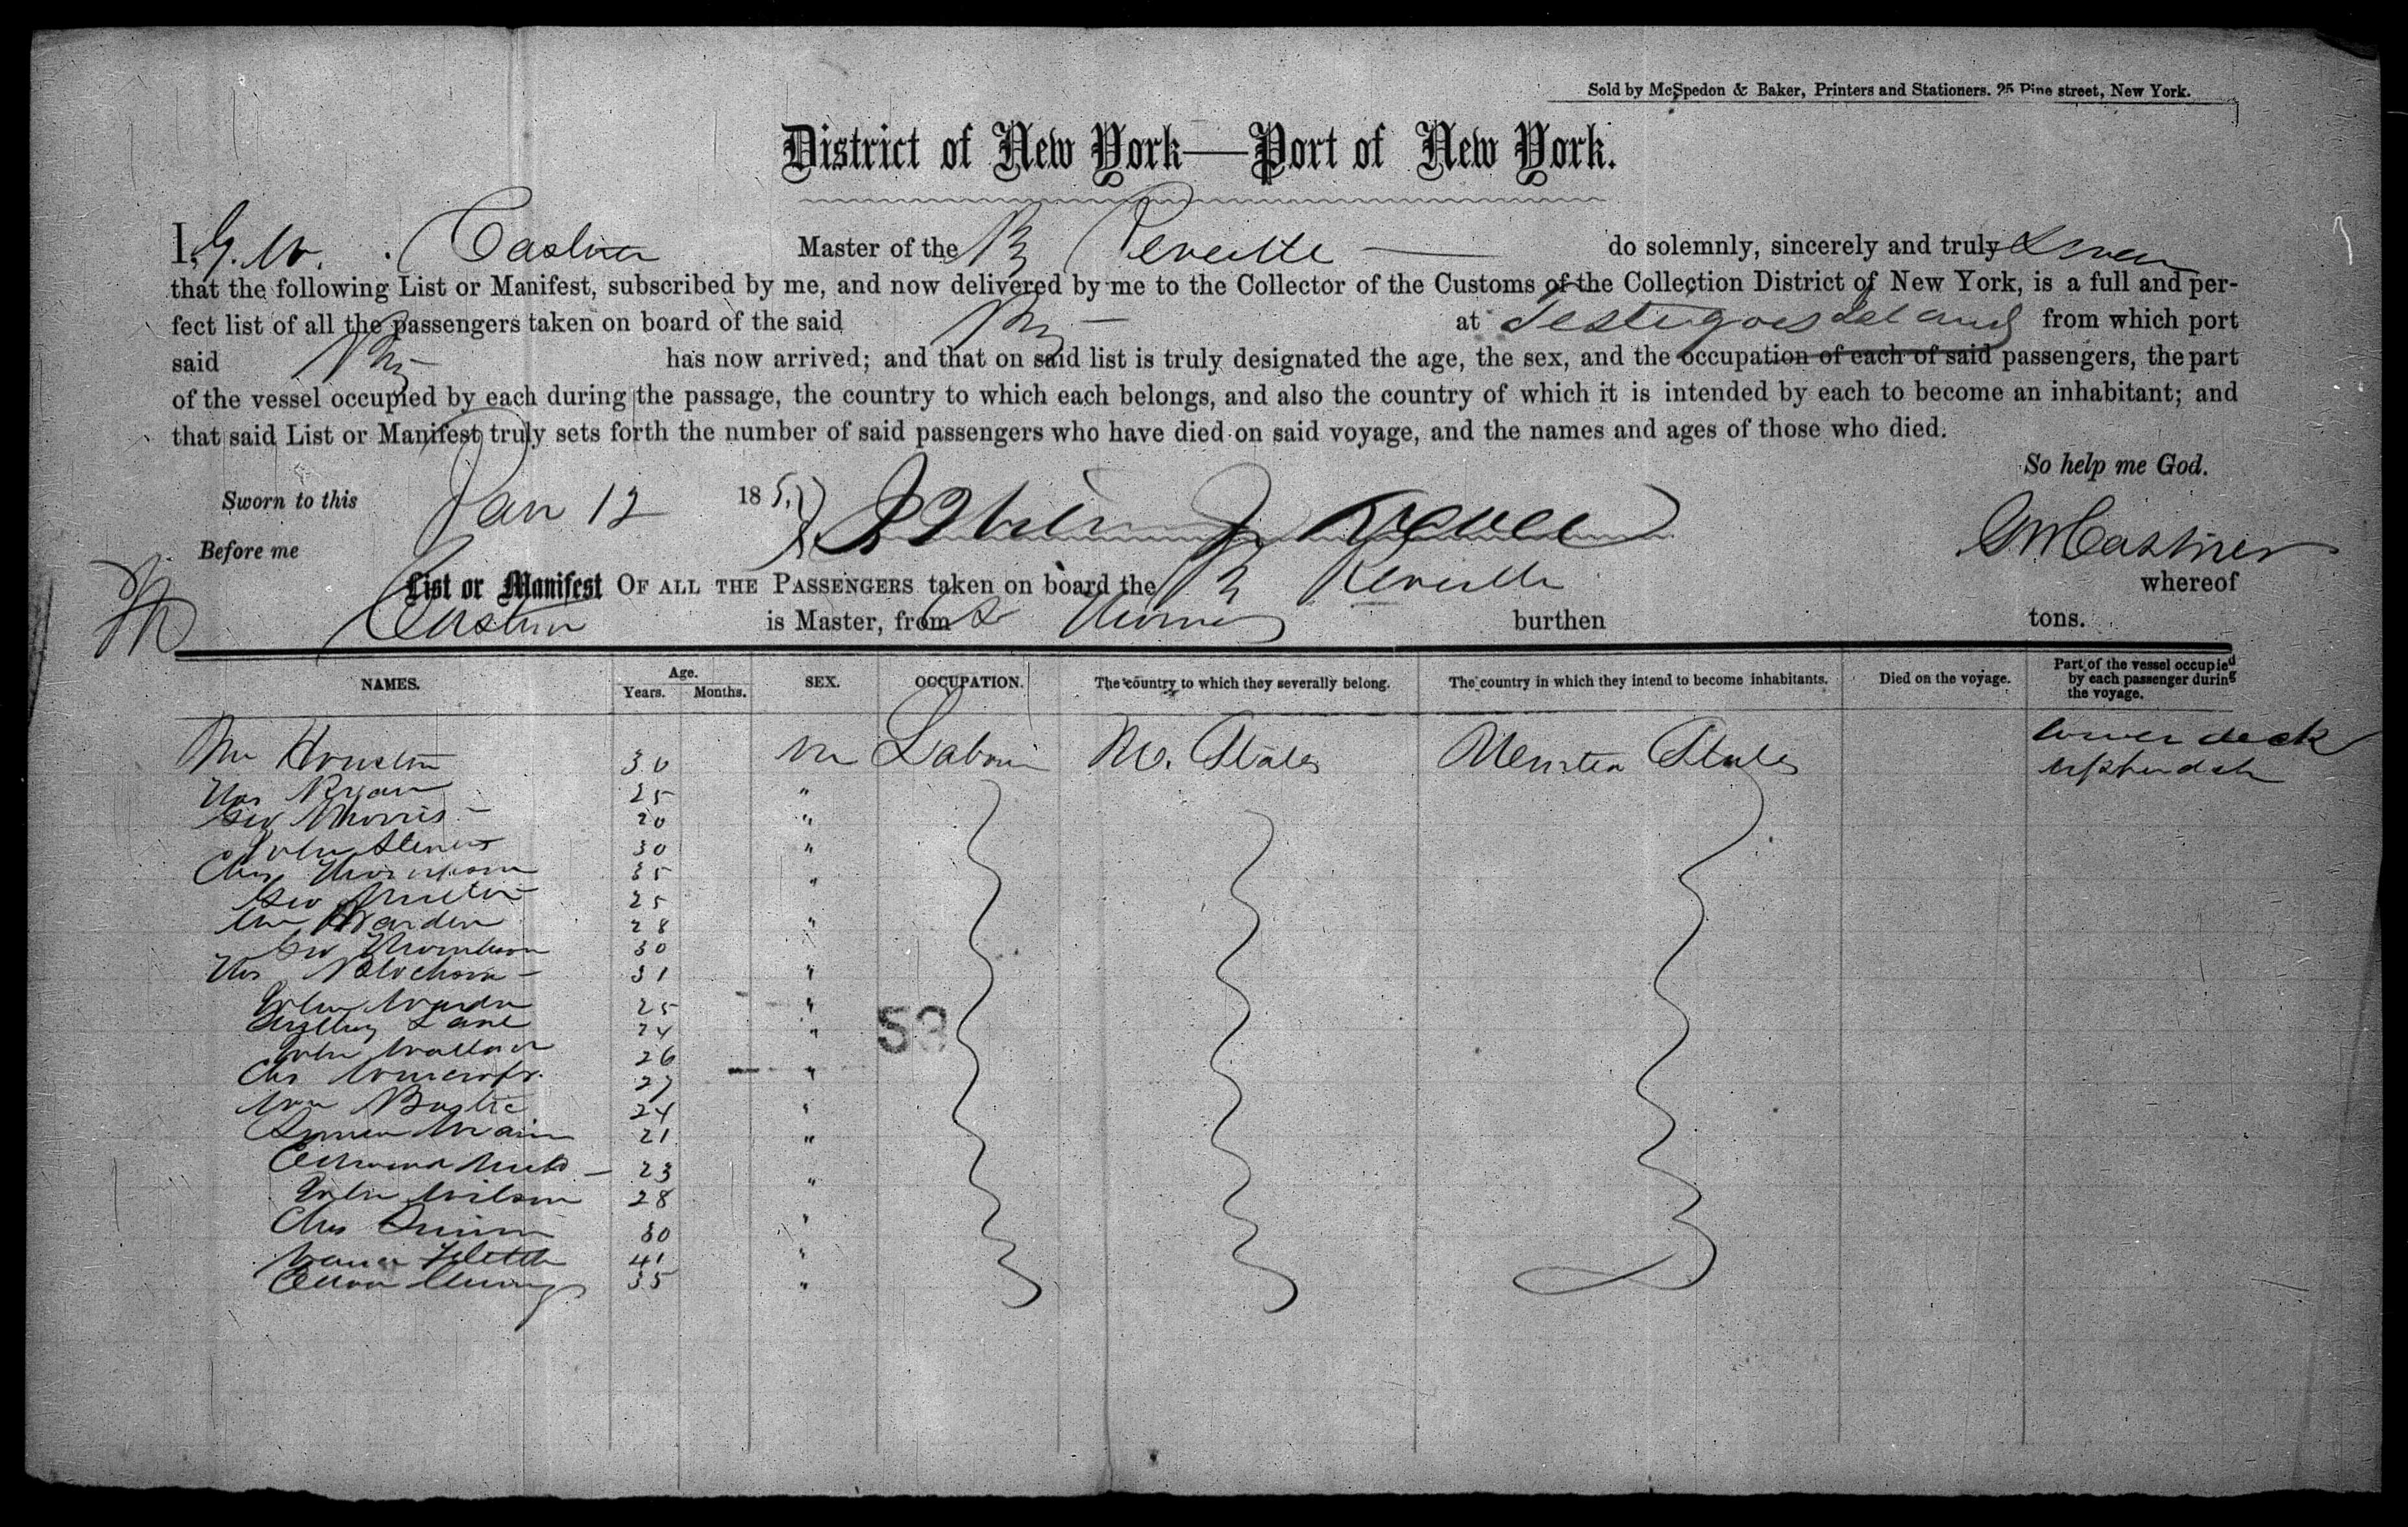 Sold by McSpedon & Baker, Printers and Stationers. 25 Pine street, New York.
District of New York—Port of New York.
I, G. W. Castner Master of the Br Reveille do solemnly, sincerely and truly swear
that the following List or Manifest, subscribed by me, and now delivered by me to the Collector of the Customs of the Collection District of New York, is a full and per-
fect list of all the passengers taken on board of the said Brg at Testigoes Island from which port
said Brg has now arrived; and that on said list is truly designated the age, the sex, and the occupation of each of said passengers, the part
of the vessel occupied by each during the passage, the country to which each belongs, and also the country of which it is intended by each to become an inhabitant; and
that said List or Manifest truly sets forth the number of said passengers who have died on said voyage, and the names and ages of those who died.
So help me God.
Sworn to this Jan 12 185
Before me
GW Castner
List or Manifest OF ALL THE PASSENGERS taken on board the Br Reveille whereof
Castner is Master, from St Thomas burthen tons.
NAMES. Age. Years. Months. SEX. OCCUPATION. The country to which they severally belong. The country in which they intend to become inhabitants. Died on the voyage. Part of the vessel occupied by each passenger during the voyage.
Wm Houston 30 m Labour U. States United States lower deck
Thos Ryan 25 "
Geo Morris 20 "
John Stevens 30 "
Chas Thompson 35 "
Geo 25
Wm Warden 28 "
Geo Thompson 30
Thos 31 "
John 25 "
Lane 24 "
John Wallace 26
Chas 27 "
Wm 24 "
21 "
Edmund 23
John Wilson 28 "
Chas Quinn 30 "
41 "
35 "
53